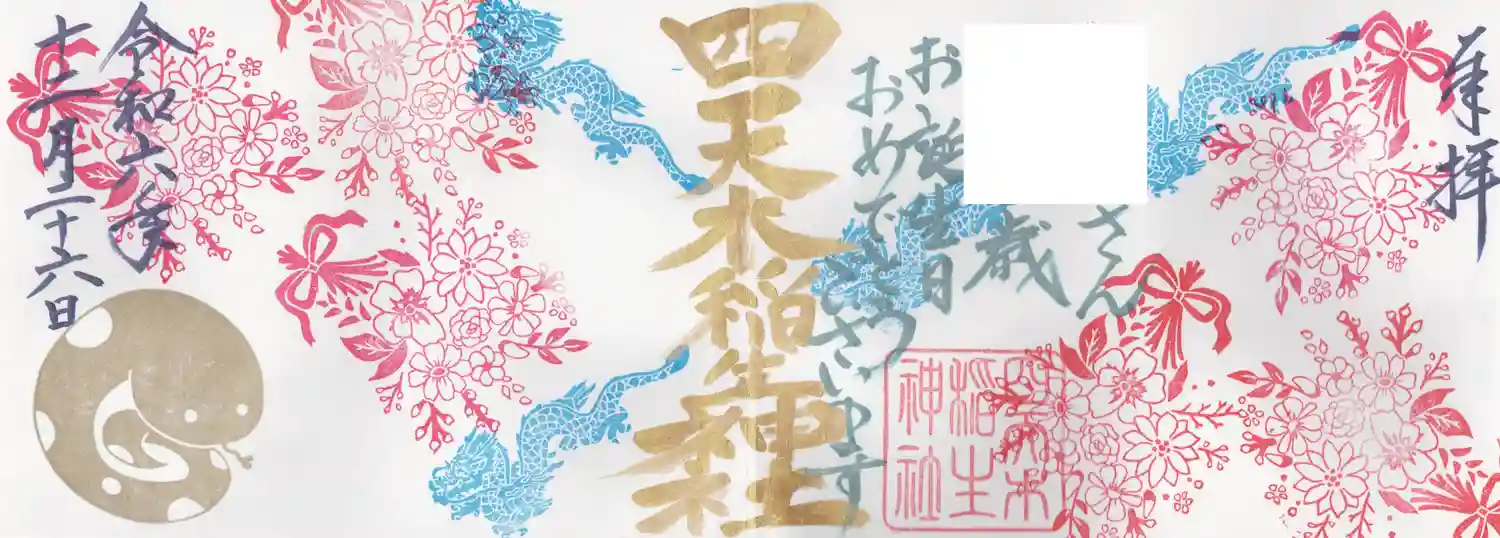 奉拝
さん
歳
お誕生日
おめでとうございます
四天木稲生神社
稲生
神社
令和六年
十二月二十六日